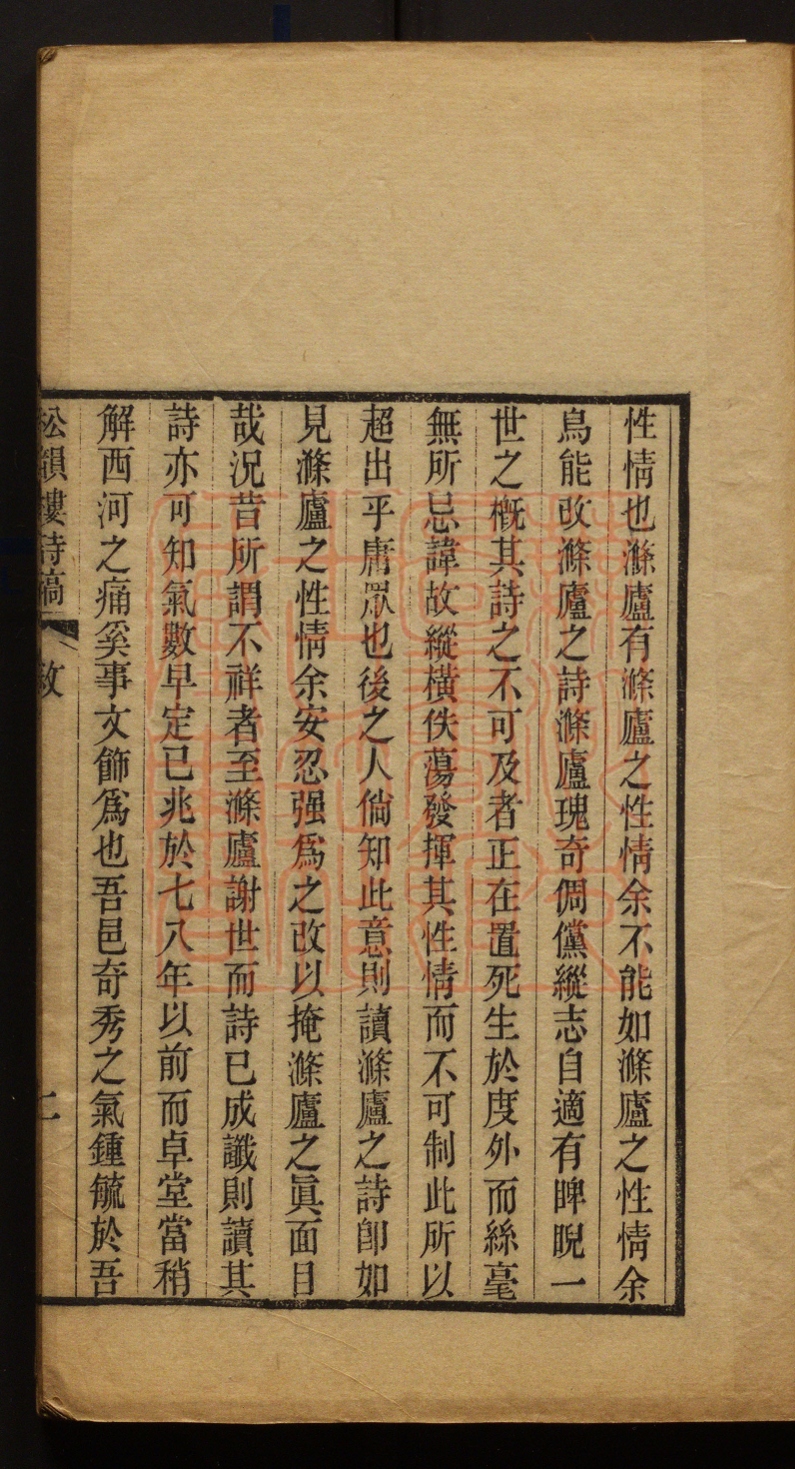 性情也滌廬有滌廬之性情余不能如滌廬之性情余
烏能改滌廬之詩滌廬瑰奇倜儻縱志自適有睥睨一
世之概其詩之不可及者正在置死生於度外而絲毫
無所忌諱故縱橫佚蕩發揮其性情而不可制此所以
超出乎庸眾也後之人倘知此意則讀滌廬之詩卽如
見滌廬之性情余安忍强爲之改以掩滌廬之眞面目
哉況昔所謂不祥者至滌廬謝世而詩已成讖則讀其
詩亦可知氣數早定已兆於七八年以前而卓堂當稍
解西河之痛奚事文飾爲也吾邑奇秀之氣鍾毓於吾
松韻樓詩稿 敘 二